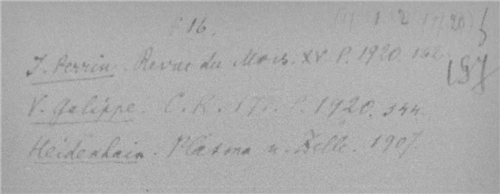 16.
J. Perrin. Revue du Mois. XV. P. 1920. 162.
V. Galippe. C. R. 171. P. 1920. 344.
Heidenhain. Plasma u. Zelle. 1907.